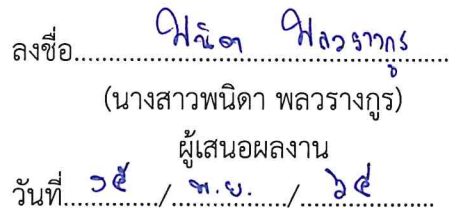 ลงชื่อ พนิดา พลวรางกูร
(นางสาวพนิดา พลวรางกูร)
ผู้เสนอผลงาน
วันที่ ๑๕ / พ.ย. / ๖๕